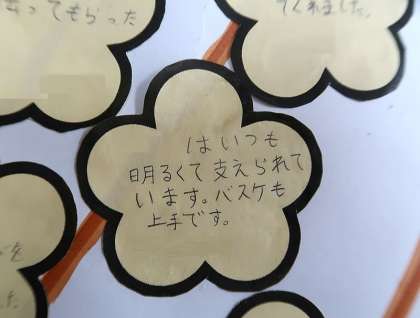 会ってもらった
てくれました。
はいつも
明るくて支えられて
います。バスケも
上手です。
を
た